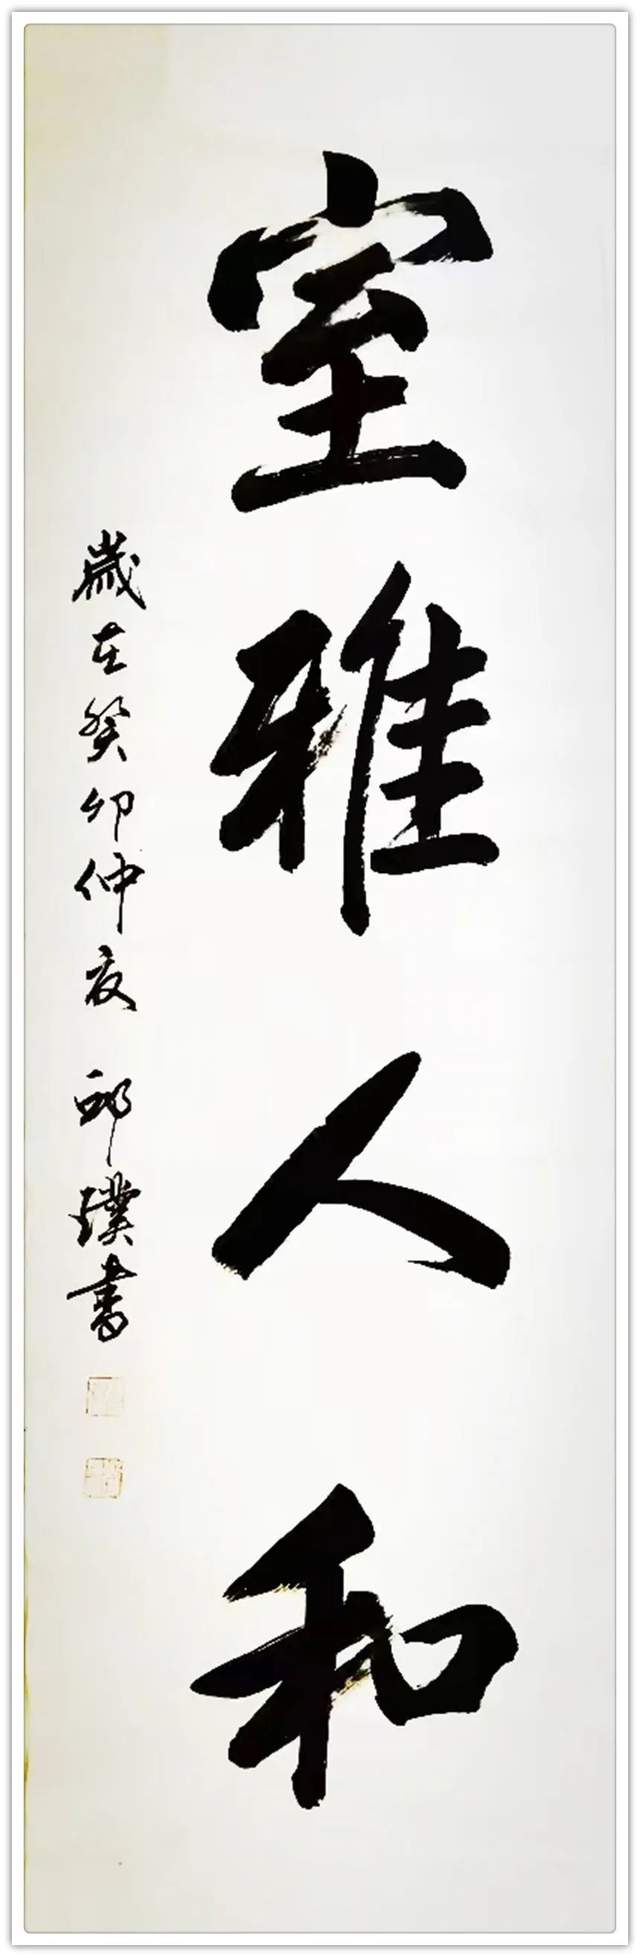 室雅人和
歲在癸卯仲夏 邱璞書